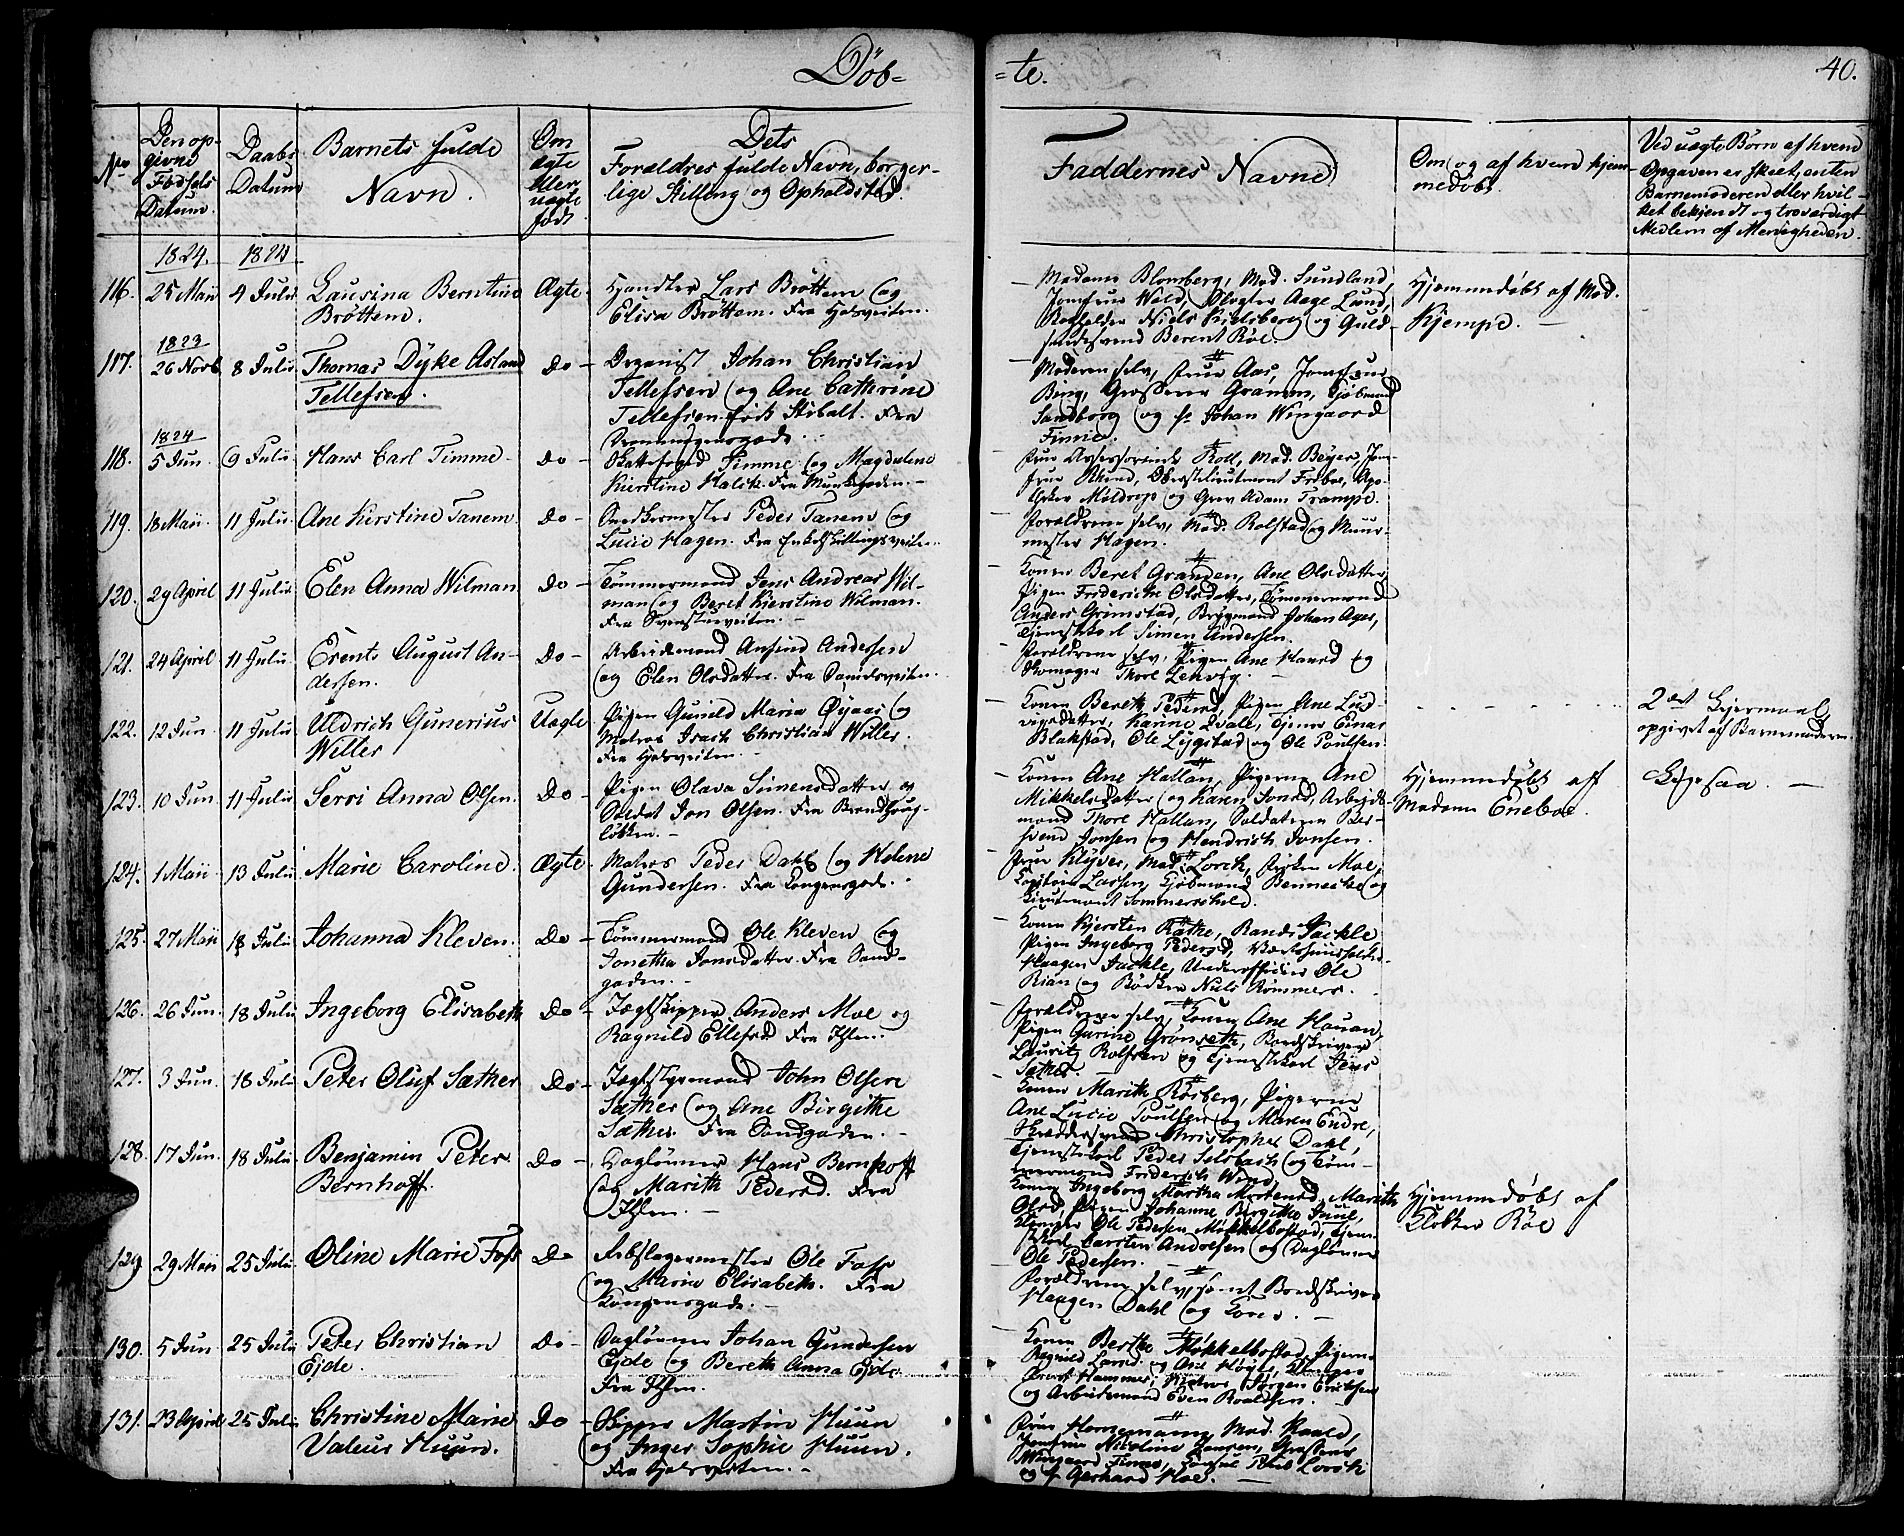 Döb-
=te.
40.
No
Den op-
givne
Fødsels
Datum.
Daabs
Datum
Barnets fulde
Navn.
Om
ægte
eller
uægte
født
Dets
Forældres fulde Navn, borger-
lige Stilling og Opholdsted.
Faddernes Navne
Om og af hvem hjem-
medøbt.
Ved uægte Børn af hvem
Opgaven er skeet, enten
Barnemoderen eller hvil-
ket bekjendt og troværdigt
Medlem af Menigheden.
1824. 1824
116. 25 Maii 4 Julii Lausina Berntine Ægte
Brøttem.
Lars Brøttem og
Elisa Brøttem. Fra Hosveiten.
Madame Blomberg, Mad. Sundland,
Jomfrue Wold, Aage Lund,
Niels Kielsberg og Guld-
smedsvend Berent Röe.
Hjemmedøbt af Mad.
Kjempe.
1823
117. 26 Novb 8 Julii Thomas Dÿke Acland Do
Tellefsen.
Organist Johan Christian
Tellefsen og Ane Cathrine
Tellefsen født Stibolt. Fra
Dronningensgade.
Moderen selv, Frue Aas, Jomfrue
Bing, Grosserer Gramm, Kjöbmand
Sandborg og Hr Johan Wingaard
Finne.
1824
118. 5 Jun. 9 Julii Hans Carl Timme Do
Timme og Magdalene
Kierstine Fra Munkegaden.
Frue Assessorinde Roll, Mad. Beÿer, Jom-
frue Oberstlieutnant Frebøe, Apo-
theker Møldrup og Grev Adam Trampe.
119. 18 Maii. 11 Julii. Ane Kirstine Tanem. Do
Snedkermester Peder Tanem og
Lucie Hagen. Fra
Forældrene selv, Mad. Rolstad og Muur-
mester Hagen.
120. 29 April 11 Julii. Elen Anna Wilman Do
Tömmermand Jens Andreas Wil-
man og Beret Kjerstine Wilman.
Fra
Konen Beret Granden, Ane Olsdatter,
Pigen Friderikke Olsdatter, Tømmermand
Anders Grimstad, Brÿgmand Johan Ages,
Tjenestkarl Simen Andersen.
121. 24 April 11 Julii. Erents August An- Do
dersen.
Arbeidsmand Ansind Andersen
og Elen Olsdatter. Fra
Forældrene selv, Pigen Ane Hansd og
Skomager Thore
122. 12 Jun. 11 Julii. Uldrich Gunerius Uægte
Willer
Pigen Gunild Maria Öÿaas og
Matros Isach Christian Willer.
Fra Hosveiten.
Konen Bereth Pedersd, Pigen Ane Lud-
vigsdatter, Karine Tjener Einar
Blakstad, Ole og Ole Poulsen
2det Leiermaal,
opgivet af Barnemoderen.
123. 10 Jun. 11 Julii Serri Anna Olsen. Do
Pigen Olava Simensdatter og
Soldat Jon Olsen. Fra
løkken.
Konen Ane Hallan, Pigerne Ane
Mikkelsdatter og Karen Jonsd, Arbeids-
mand Thore Hallan, Soldaterne
Jonsen og Hendrich Jonsen.
Hjemmedøbt af
Madame Eneboe.
Ligesaa.
124. 1 Maii 13 Julii Marie Caroline. Ægte
Matros Peder Dahl og Helene
Gundersen. Fra Kongensgade.
Frue Klÿver, Mad. Lorck, Frøken Moe,
Kaptein Lassen, Kjöbmand Benneche og
Lieutenant Sommerschild.
125. 27 Maii 18 Julii Johanna Kleven. Do
Tömmermand Ole Kleven og
Jonetha Jonsdatter. Fra Sand-
gaden.
Konen Kjersten Räthe, Randi Jackle
Pigen Ingeborg Pedersd,
Haagen Jackle, Underofficier Ole
Rian og Bødker Niels Rømmers.
126. 26 Jun. 18 Julii Ingeborg Elisabeth Do
Jægtskipper Anders Moe og
Ragnild Ellefsd. Fra Ihlen.
Forældrene selv, Konen Ane Hauan,
Pigen Gurine Grønseth, Bordskriver
Lauritz Rolfsen og Tjenestkarl Jens
Sæther
127. 3 Jun. 18 Julii Peter Oluf Sæther Do
Jægtstyrmand John Olsen
Sæther og Ane Birgitthe
Sæther. Fra Sandgaden.
Konen Marith Rosberg, Pigerne
Ane Lucie Poulsen og Maren Endre,
Skræddersvend Christopher Dahl,
Tjenestkarl Peder Selsbach og Tøm-
mermand Friderich Wind.
128. 17 Jun. 18 Julii Benjamin Peter Do
Bernhoff.
Daglønner Hans Bernhoff
og Marith Pedersd. Fra
Ihlen.
Konen Ingeborg Martha Mortensd, Marith
Olsd, Pigen Johanne Birgitthe Juul,
Ole Pedersen Møkkelbostad, Tjenest-
karl Carsten Andresen og Daglønner
Ole Pedersen.
Hjemmedøbt af
Klokker Röe
129. 29 Maii 25 Julii Oline Marie Foss Do
Ole Foss
og Marie Elisabeth. Fra
Kongensgade.
Forældrene selv, samt Bordskriver
Haagen Dahl og Kone.
130. 5 Jun 25 Julii Peter Christian Do
Ejde.
Daglønner Johan Gundersen
Ejde og Bereth Anna Ejde
Fra Ihlen.
Konen Berthe Møkkelbostad, Pigerne
Ragnild Larsd. og Ane Høÿle,
Hammer, Matros Jørgen Erichsen
og Arbeidsmand Even Roaldsen.
131. 23 April 25 Julii Christine Marie Do
Valeur Huun.
Skipper Martin Huun
og Inger Sophie Huun.
Fra Hosveiten.
Frue Hornemann, Mad.
Jomfrue Nicoline Jensen, Grosserer
Wingaard Finne, Consul Lorck
og Hr Gerhard Moe.